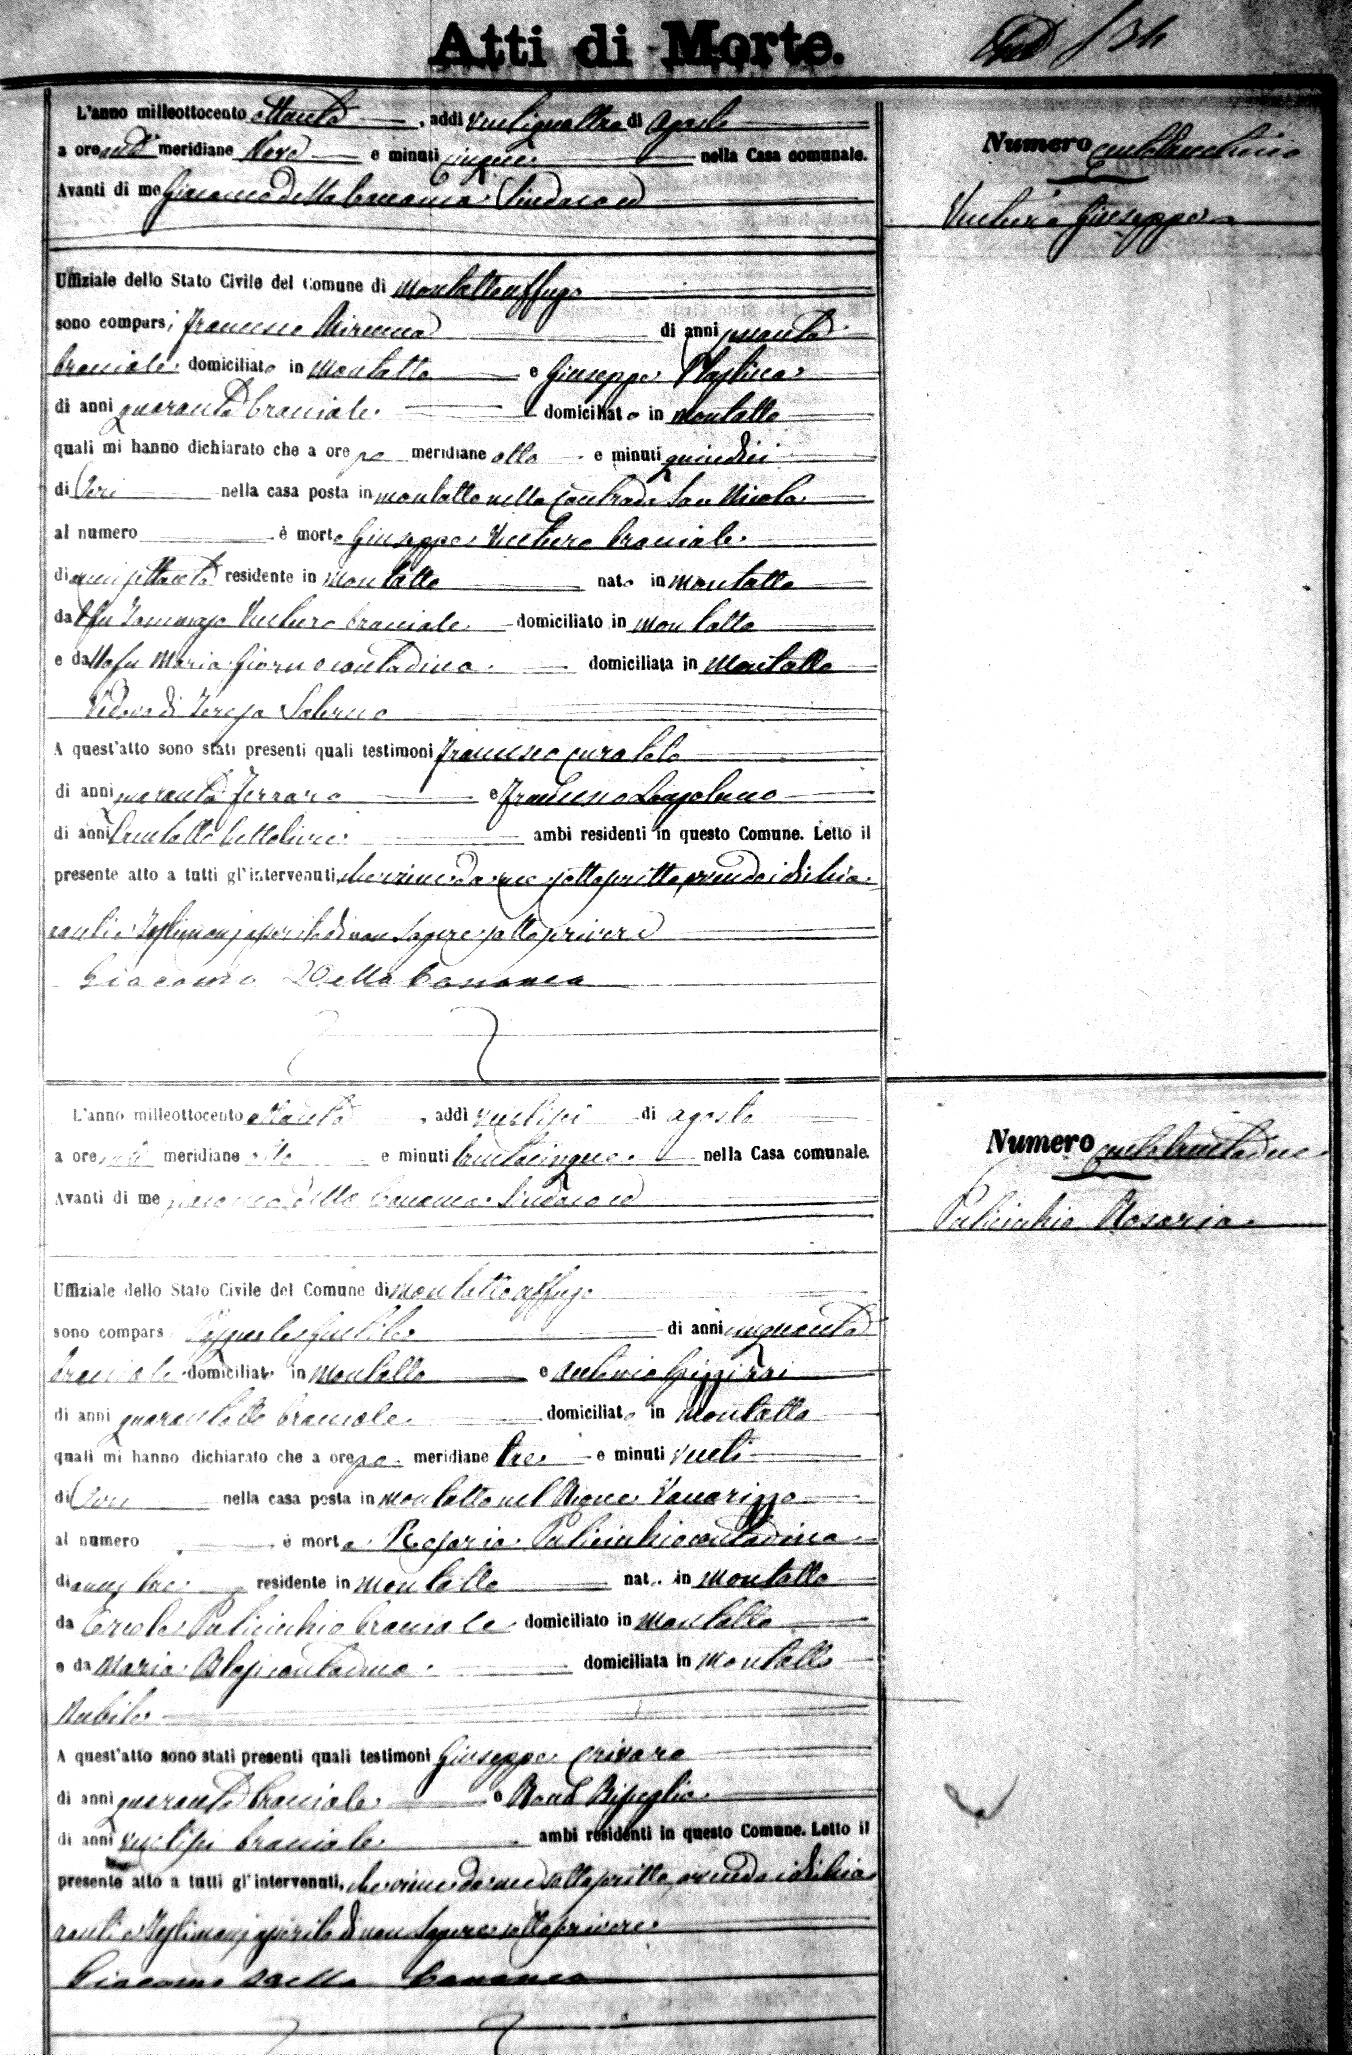 Atti di Morte.
L'anno milleottocento ottanta, addì ventiquattro di Agosto
a ore anti meridiane Nove e minuti cinque nella Casa comunale.
Avanti di me Giacomo Della Cananea Sindaco ed
Uffiziale dello Stato Civile del Comune di Montalto uffugo
sono comparsi Francesco di anni
bracciale domiciliato in Montalto e Giuseppe
di anni quaranta bracciale domiciliato in Montalto
quali mi hanno dichiarato che a ore po meridiane otto e minuti quindici
di Ieri nella casa posta in Montalto nella contrada San Nicola
al numero è morto Giuseppe Ventura bracciale
di anni settanta residente in Montalto nato in Montalto
dal fu Tommaso Ventura bracciale domiciliato in Montalto
e dalla fu Maria Giorno contadina domiciliata in Montalto
Vedovo di Teresa Salerno
A quest'atto sono stati presenti quali testimoni Francesco Curatolo
di anni quaranta Ferraro e Francesco
di anni trentotto ambi residenti in questo Comune. Letto il
presente atto a tutti gl'intervenuti, che viene da me sottoscritto avendo i dichia
ranti e Testimonj asserito di non sapere sottoscrivere
Giacomo Della Cananea
Numero centotrentuno
Ventura Giuseppe
L'anno milleottocento ottanta, addì ventisei di Agosto
a ore anti meridiane otto e minuti trentacinque nella Casa comunale.
Avanti di me Giacomo Della Cananea Sindaco ed
Uffiziale dello Stato Civile del Comune di Montalto uffugo
sono compars Pasquale Gentile di anni cinquanta
bracciale domiciliato in Montalto e Antonio
di anni quarantotto bracciale domiciliato in Montalto
quali mi hanno dichiarato che a ore po meridiane tre e minuti venti
di Ieri nella casa posta in Montalto nel Rione Vaccarizzo
al numero è morta Rosaria Pulicicchio contadina
di anni tre residente in Montalto nat in Montalto
da Ercole Pulicicchio bracciale domiciliato in Montalto
e da Maria Blasi contadina domiciliata in Montalto
Nubile
A quest'atto sono stati presenti quali testimoni Giuseppe Crivaro
di anni quaranta bracciale e
di anni ventisei bracciale ambi residenti in questo Comune. Letto il
presente atto a tutti gl'intervenuti, che viene da me sottoscritto avendo i dichia
ranti e Testimonj asserito di non sapere sottoscrivere
Giacomo Della Cananea
Numero centotrentadue
Pulicicchio Rosaria